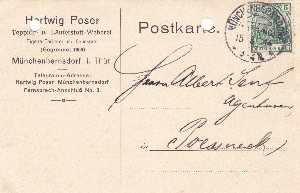 Hartwig Poser
Teppich- u. Läuferstoff-Weberei
Münchenbernsdorf i. Thür.
Telegramm-Adresse:
Hartwig Poser Münchenbernsdorf
Fernsprech-Anschluß No. 3.
Postkarte.
Herrn Albert Senf
Agenturen
in Poessneck